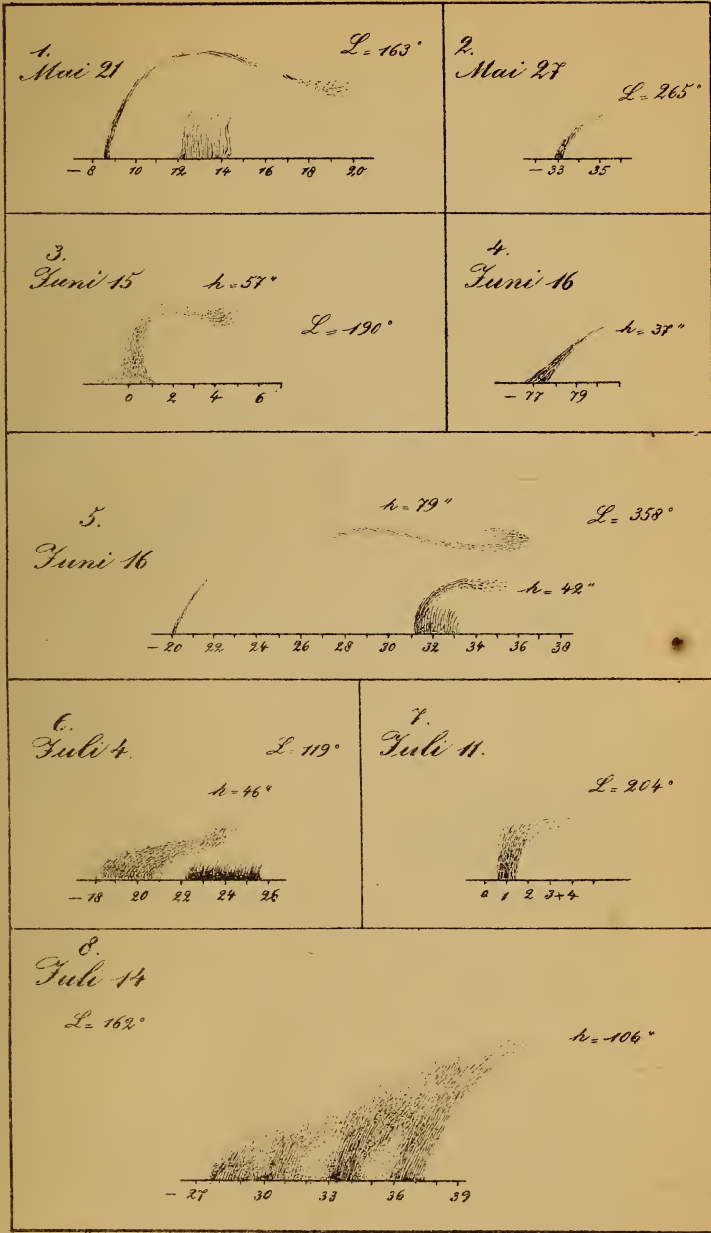 1.
Mai 21
L = 163°
- 8 10 12 14 16 18 20
2.
Mai 27
L = 265°
- 33 35
3.
Juni 15
h = 57"
L = 190°
0 2 4 6
4.
Juni 16
h = 37"
- 77 79
5.
Juni 16
h = 79"
L = 358°
h = 42"
- 20 22 24 26 28 30 32 34 36 38
6.
Juli 4.
L = 119°
h = 46"
- 18 20 22 24 26
7.
Juli 11.
L = 204°
0 1 2 3+4
8.
Juli 14
L = 162°
h = 106"
- 27 30 33 36 39